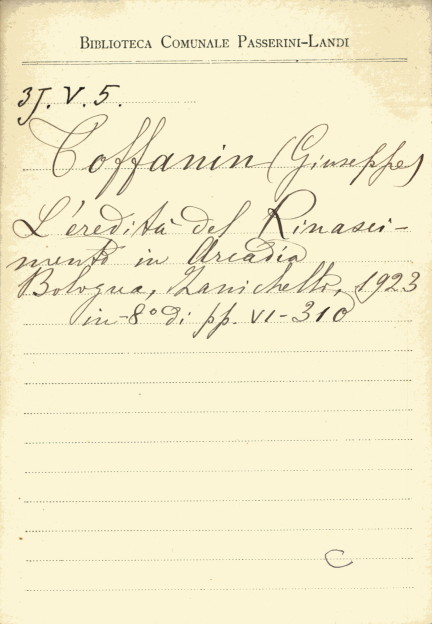 BIBLIOTECA COMUNALE PASSERINI-LANDI
3J. V. 5.
Toffanin (Giuseppe)
L'eredità del Rinasci-
mento in Arcadia
Bologna, Zanichelli, 1923
in-8° di pp. VI-310
C